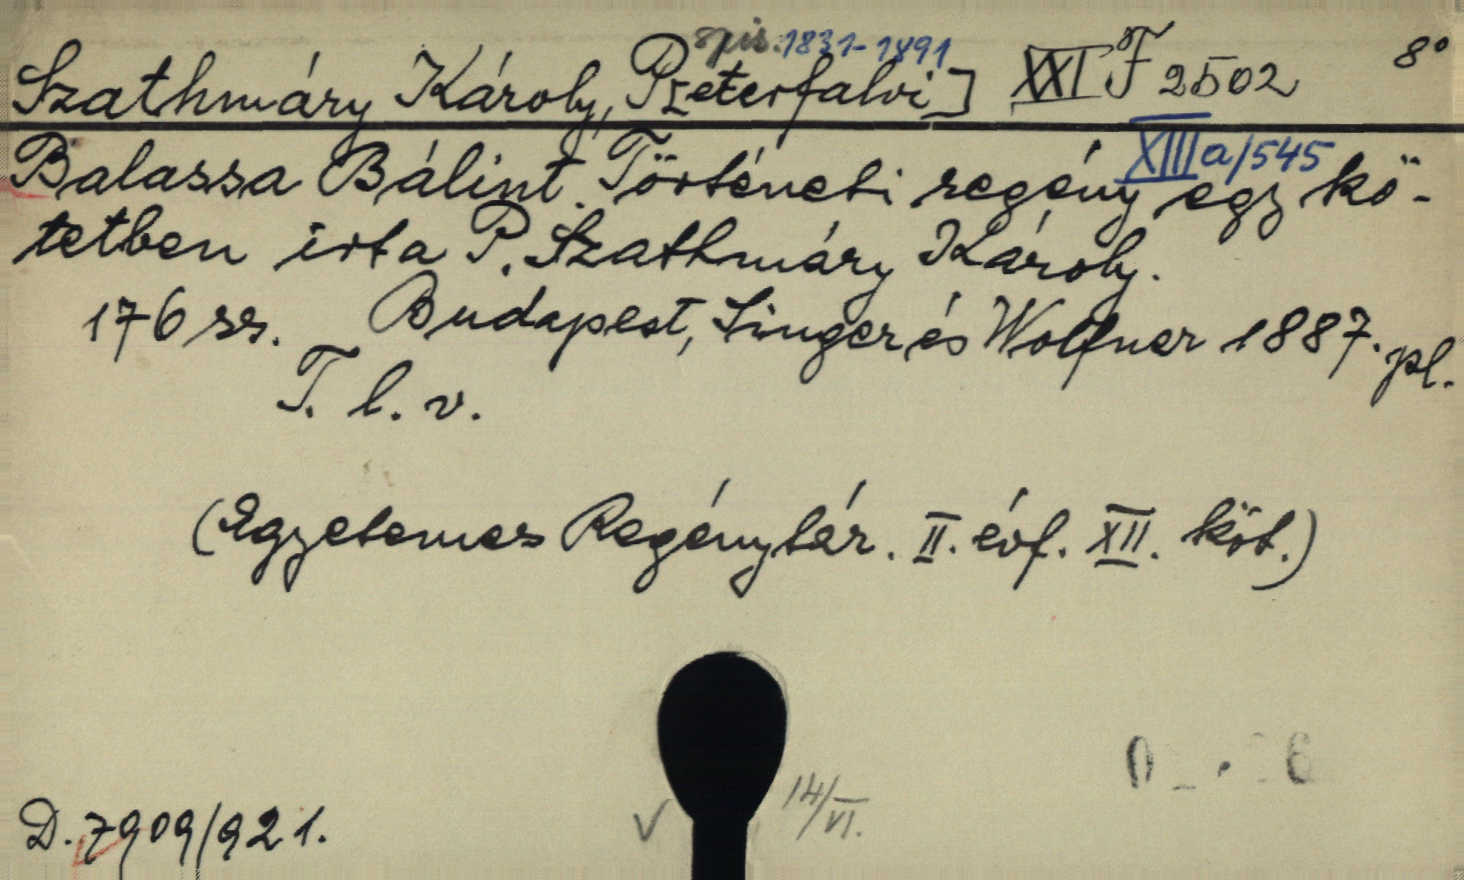 spis. 1831-1891
Szathmáry Károly, P[éterfalvi] XXI F 2502 8°
XIII a/545
Balassa Bálint. Történeti regény egy kö-
tetben irta P. Szathmáry Károly.
176 ss. Budapest, Singer és Wolfner 1887. pl.
T. l. v.
(Egyetemes Regénytár. II. évf. XII. köt.)
14/VI.
D. 7909/921.